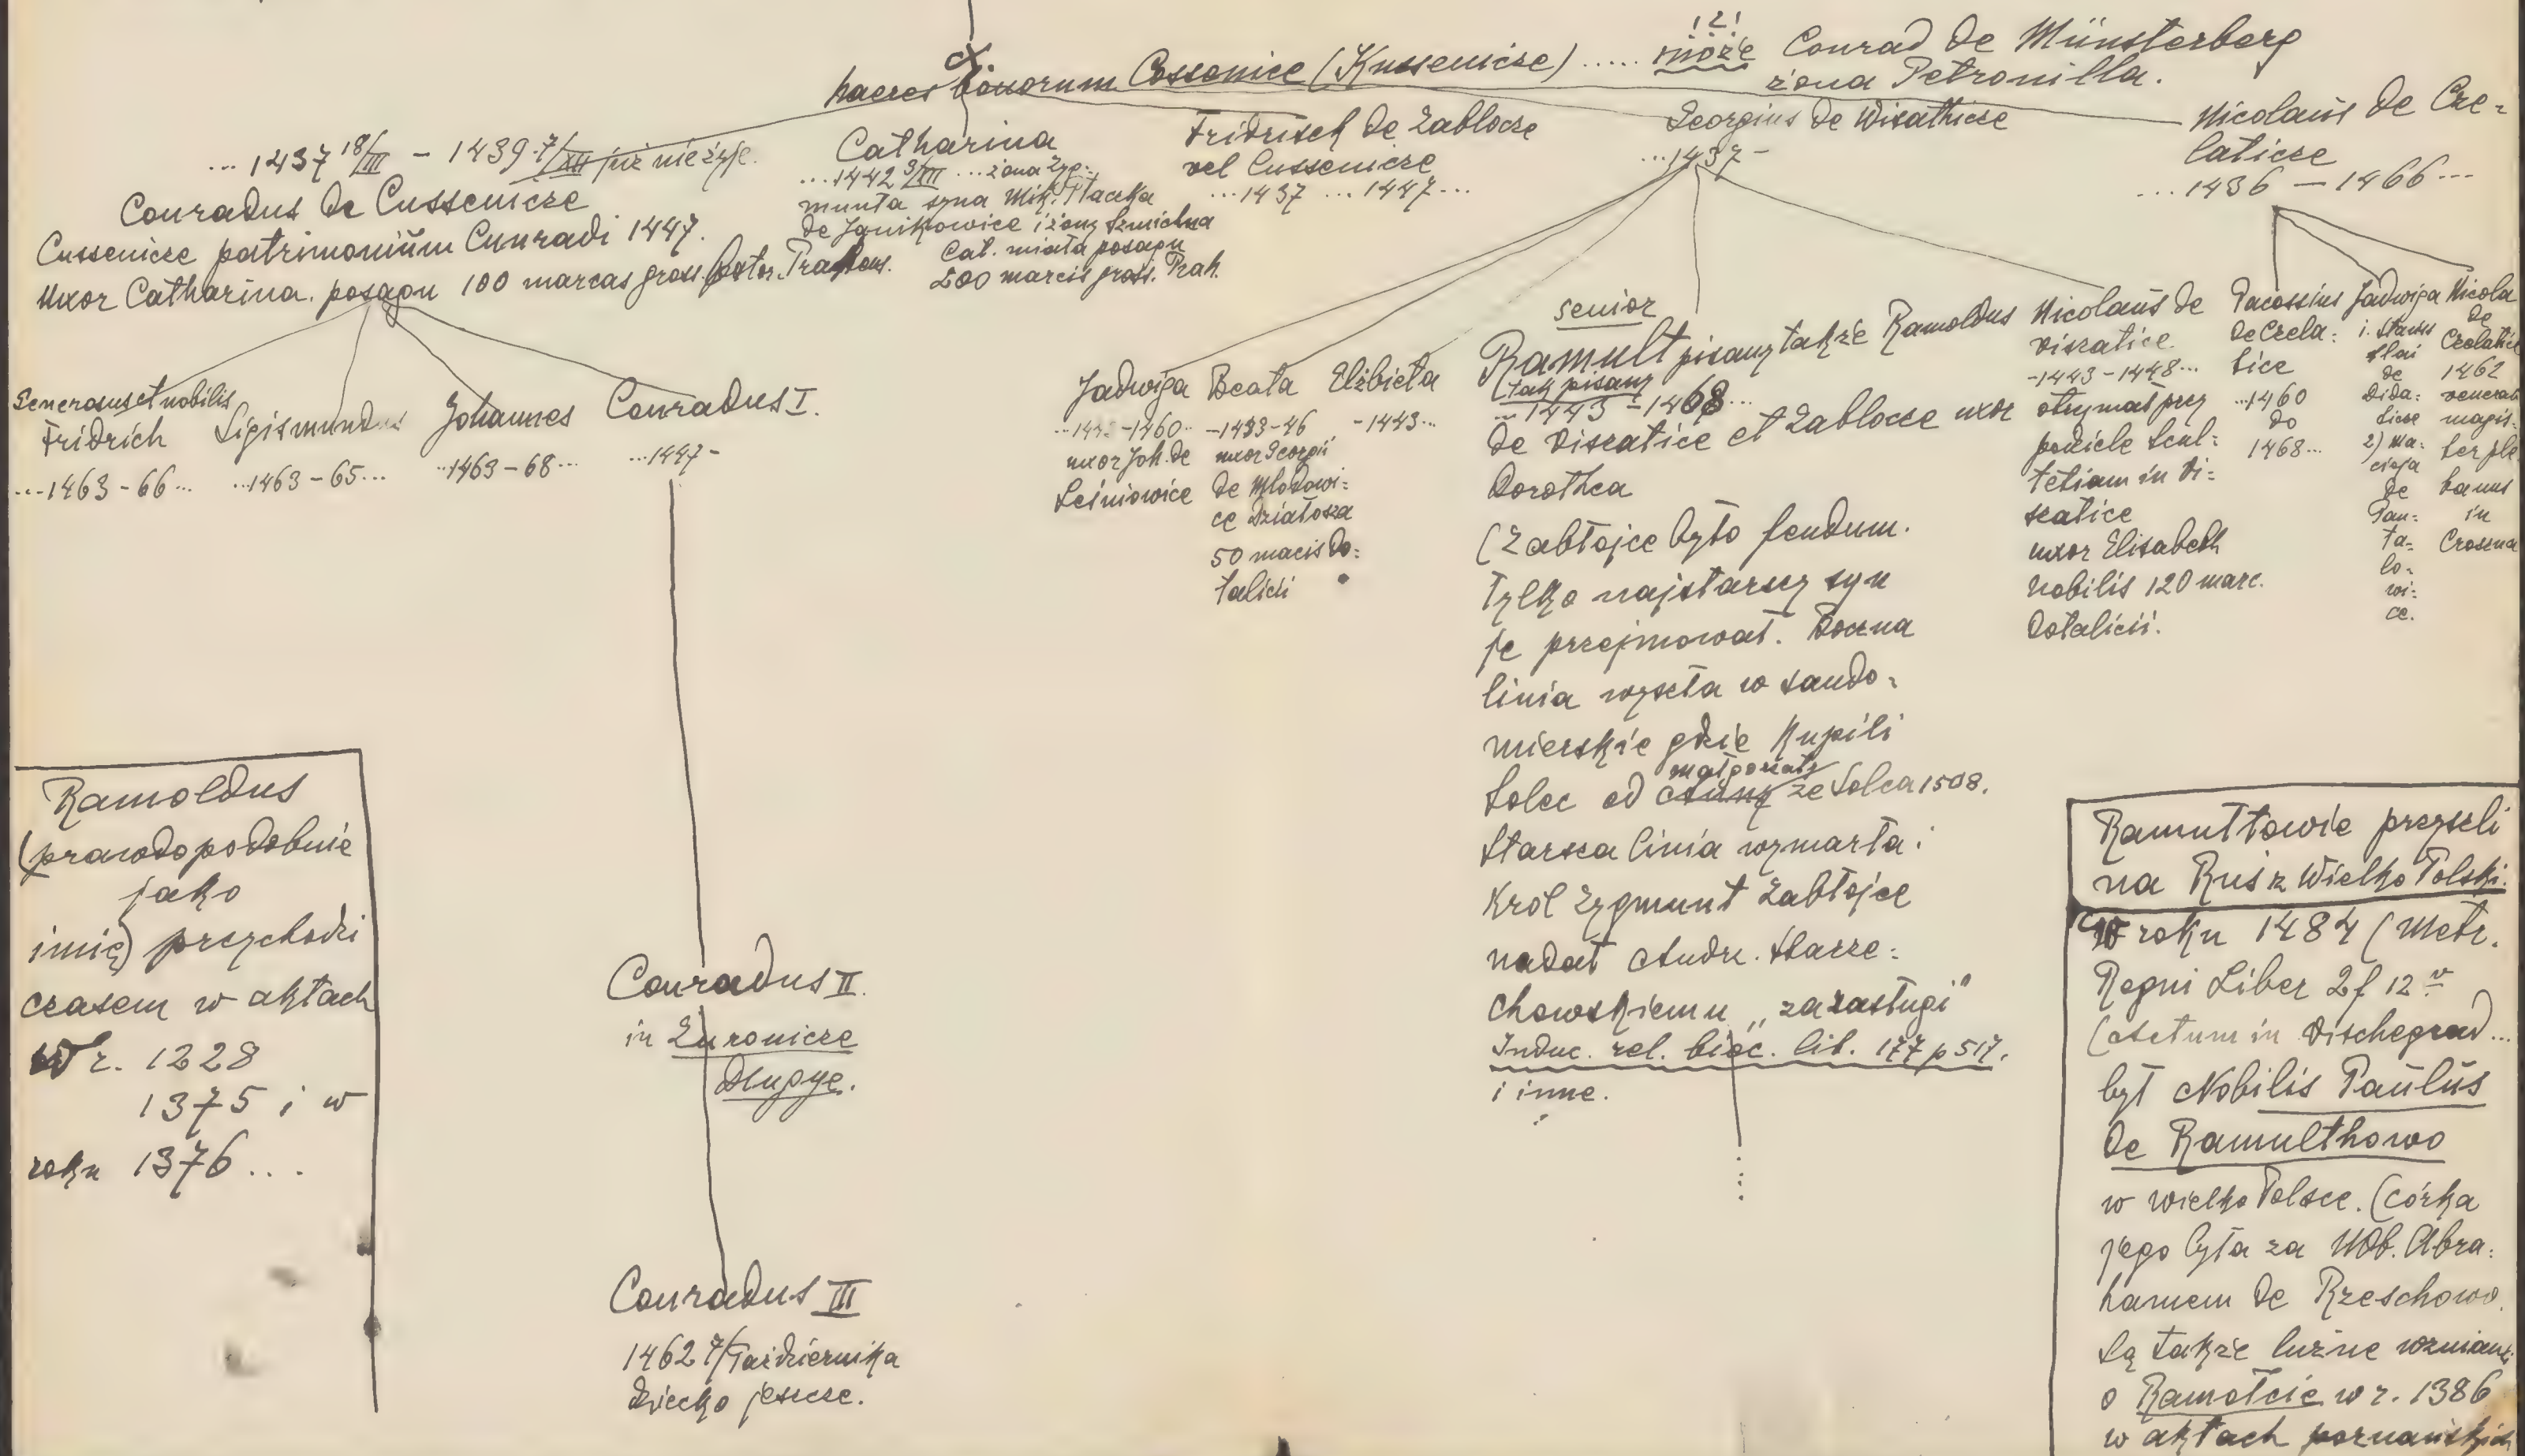 X.
haeres bonorum Cossonice (Kussenicze) ..... może Conrad de Münsterberg
!?!
żona Petronilla.
... 1437 18/III – 1439 7/XII już nie żyje.
Conradus de Cussenicze
Cussenicze patrimonium Cunradi 1447.
Uxor Catharina. posagu 100 marcas gross.
Catharina
...1442 9/III ... żona Zyg=
munta syna Mik. Placzka
de Janikowice i żony Szmichna
Cat. miała posagu
200 marcis gross. Prah.
Fridrisch de Zablocze
vel Cussenicze
...1437 ... 1447...
Georgius de Wisathicze
...1437 –
Nicolaus de Cze=
laticze
...1436 – 1466...
Generosus et nobilis
Fridrich
...1463 – 66...
Sigismundus
...1463 – 65...
Johannes
...1463 – 68...
Conradus I.
...1447 –
Jadwiga
uxor Joh. de
Leśniowice
Beata
uxor Georgii
de Mlodowi=
ce Działosza
50 macis do=
talicii
Elżbieta
–1443...
senior
Ramult pisany także Ramoldus
(tak pisany
...1443 – 1468...
de Viszatice et Zablocze uxor
Dorothea
(Zabłojce było feudum.
Tylko najstarszy syn
je przejmował. Boczna
linia wyszła w sando=
mierskie gdzie kupili
Solec od Małgorzaty ze Solca 1508.
Starsza linia wymarła i
Król Zygmunt Zabłojce
nadał Andrz. Starze=
chowskiemu „za zasługi”
Induc. rel. biec. lib. 177 p 517.
i inne.
Nicolaus de
Viszatice
–1443 – 1448...
otrzymał przy
podziele Scul=
tetiam in Vi=
szatice
uxor Elisabeth
nobilis 120 marc.
dotalicii.
Pacossius
de Czela=
tice
...1460
do
1468...
Jadwiga
i. Stanis
slai
de
Dida=
ticze
2) Ma=
cieja
de
Pan=
ta=
lo=
wi=
ce.
Nicola
de
Czelatice
1462
venerab
magis=
ter ple
banus
in
Crosna
Ramoldus
(prawdopodobnie
jako
imię) przychodzi
czasem w aktach
W r. 1228
1375 i w
roku 1376...
Conradus II.
in Zuronicze
Dlugye.
Conradus III
1462 7/Października
dziecko jeszcze.
Ramułtowie przyszli
na Ruś z WielkoPolski.
W roku 1484 (Metr.
Regni Liber 2 f 12 v
(Actum in Vischegrad...
był Nobilis Paulus
de Ramulthowo
w wielkoPolsce. (córka
jego była za Nob. Abra=
hamem de Rzeschowo.
Są także luźne wzmianki
o Ramołcie w r. 1386
w aktach poznańskich